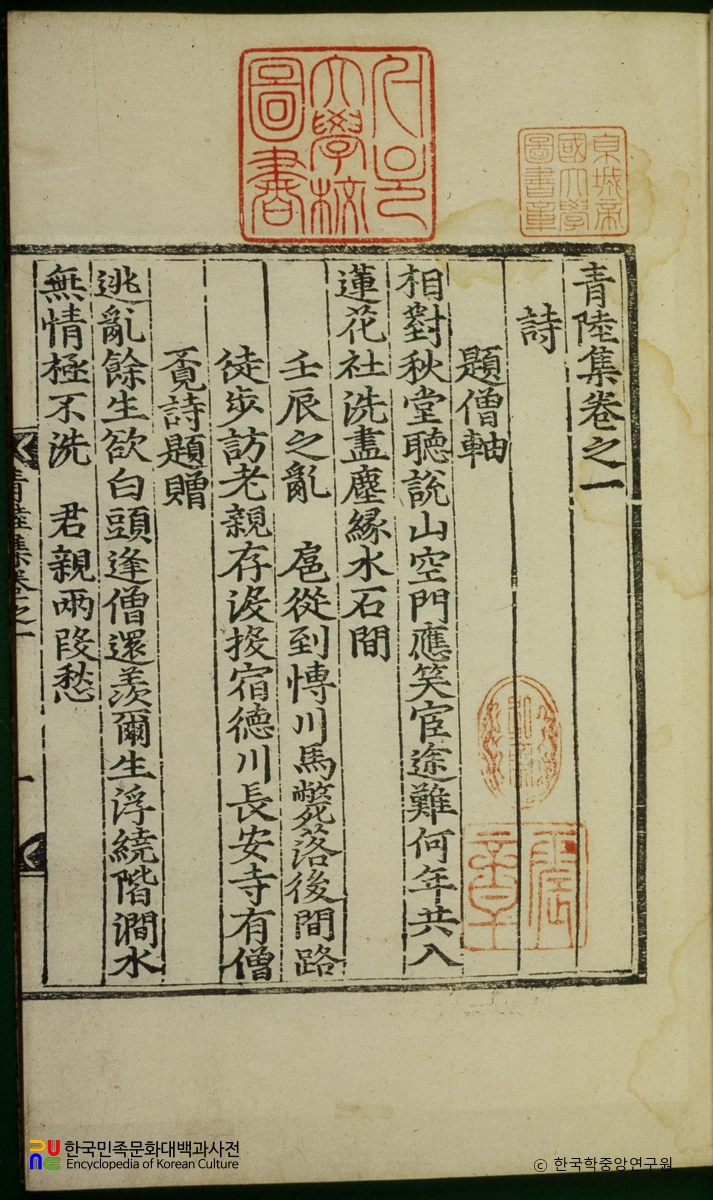 青陸集卷之一
詩
題僧軸
相對秋堂聽說山空門應笑宦途難何年共入
蓮花社洗盡塵緣水石間
壬辰之亂 扈從到博川馬斃落後間路
徒步訪老親存沒投宿德川長安寺有僧
覓詩題贈
逃亂餘生欲白頭逢僧還羨爾生浮繞階澗水
無情極不洗 君親兩段愁
青陸集卷之一
一
大學校
圖書
京城帝
國大學
圖書章
한국민족문화대백과사전
Encyclopedia of Korean Culture
© 한국학중앙연구원